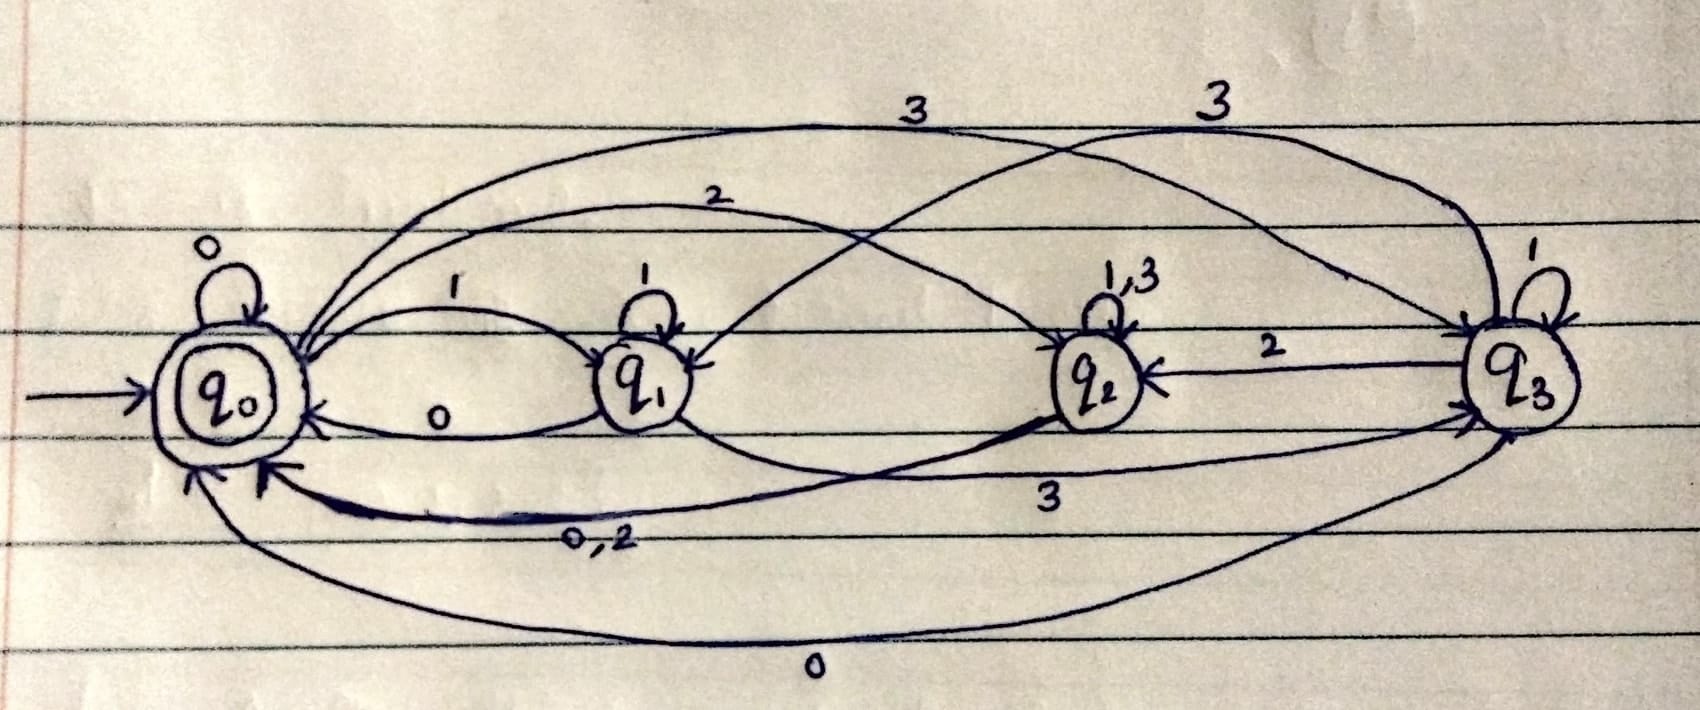 3 3
2
0 1 1 1,3 1
q0 q1 q2 2 q3
0
3
0,2
0